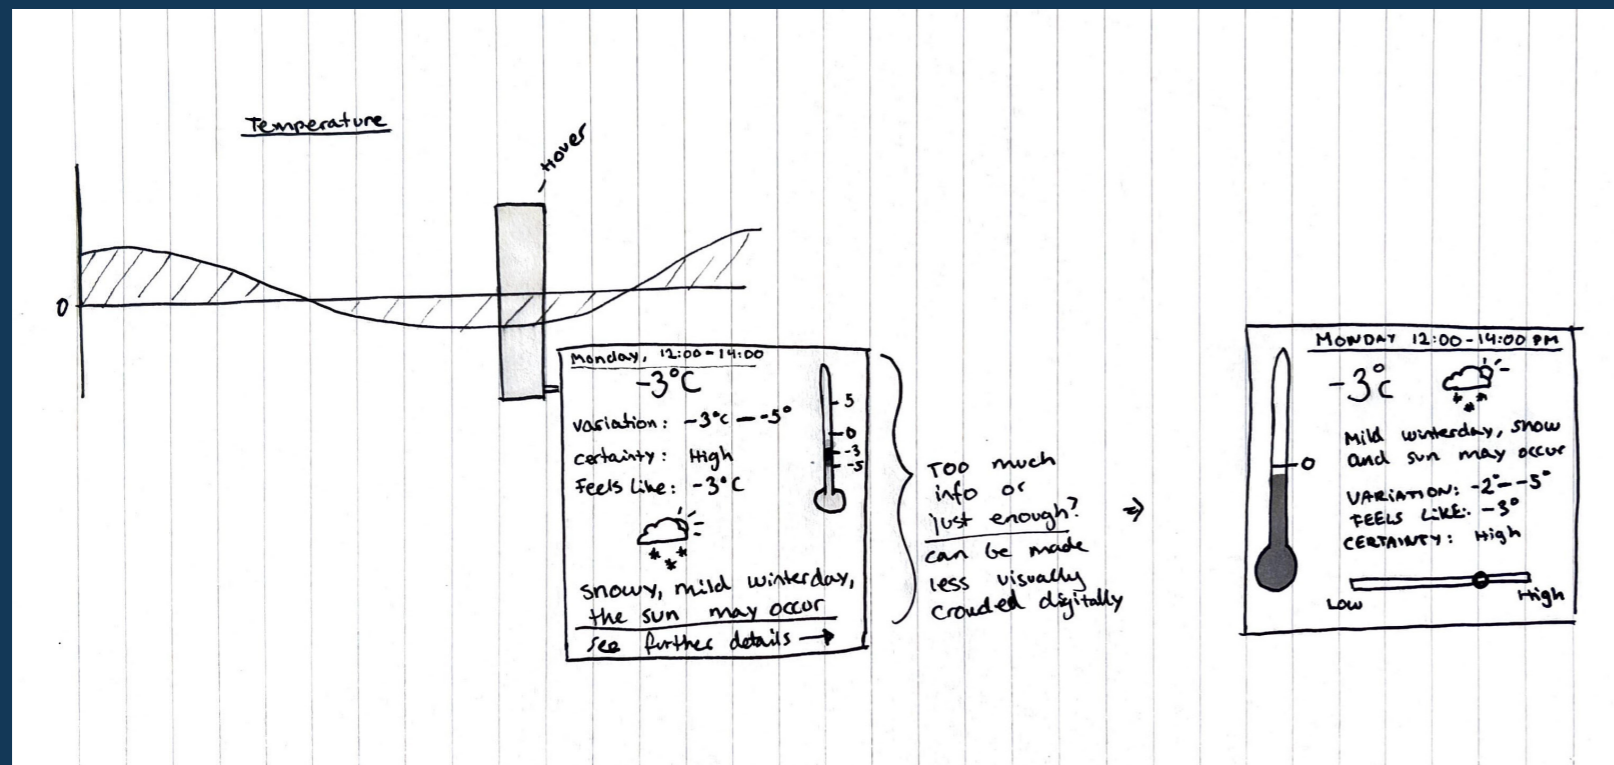 Temperature
Hover
0
Monday, 12:00-14:00
-3°C
variation: -3°C — -5°
certainty: High
Feels Like: -3°C
snowy, mild winterday,
the sun may occur
see further details →
5
0
-3
-5
Too much
info or
just enough?
can be made
less visually
crouded digitally
⇒
MONDAY 12:00-14:00 PM
-3°C
0
Mild winterday, snow
and sun may occur
VARIATION: -2°--5°
FEELS LIKE: -3°
CERTAINTY: High
Low
High